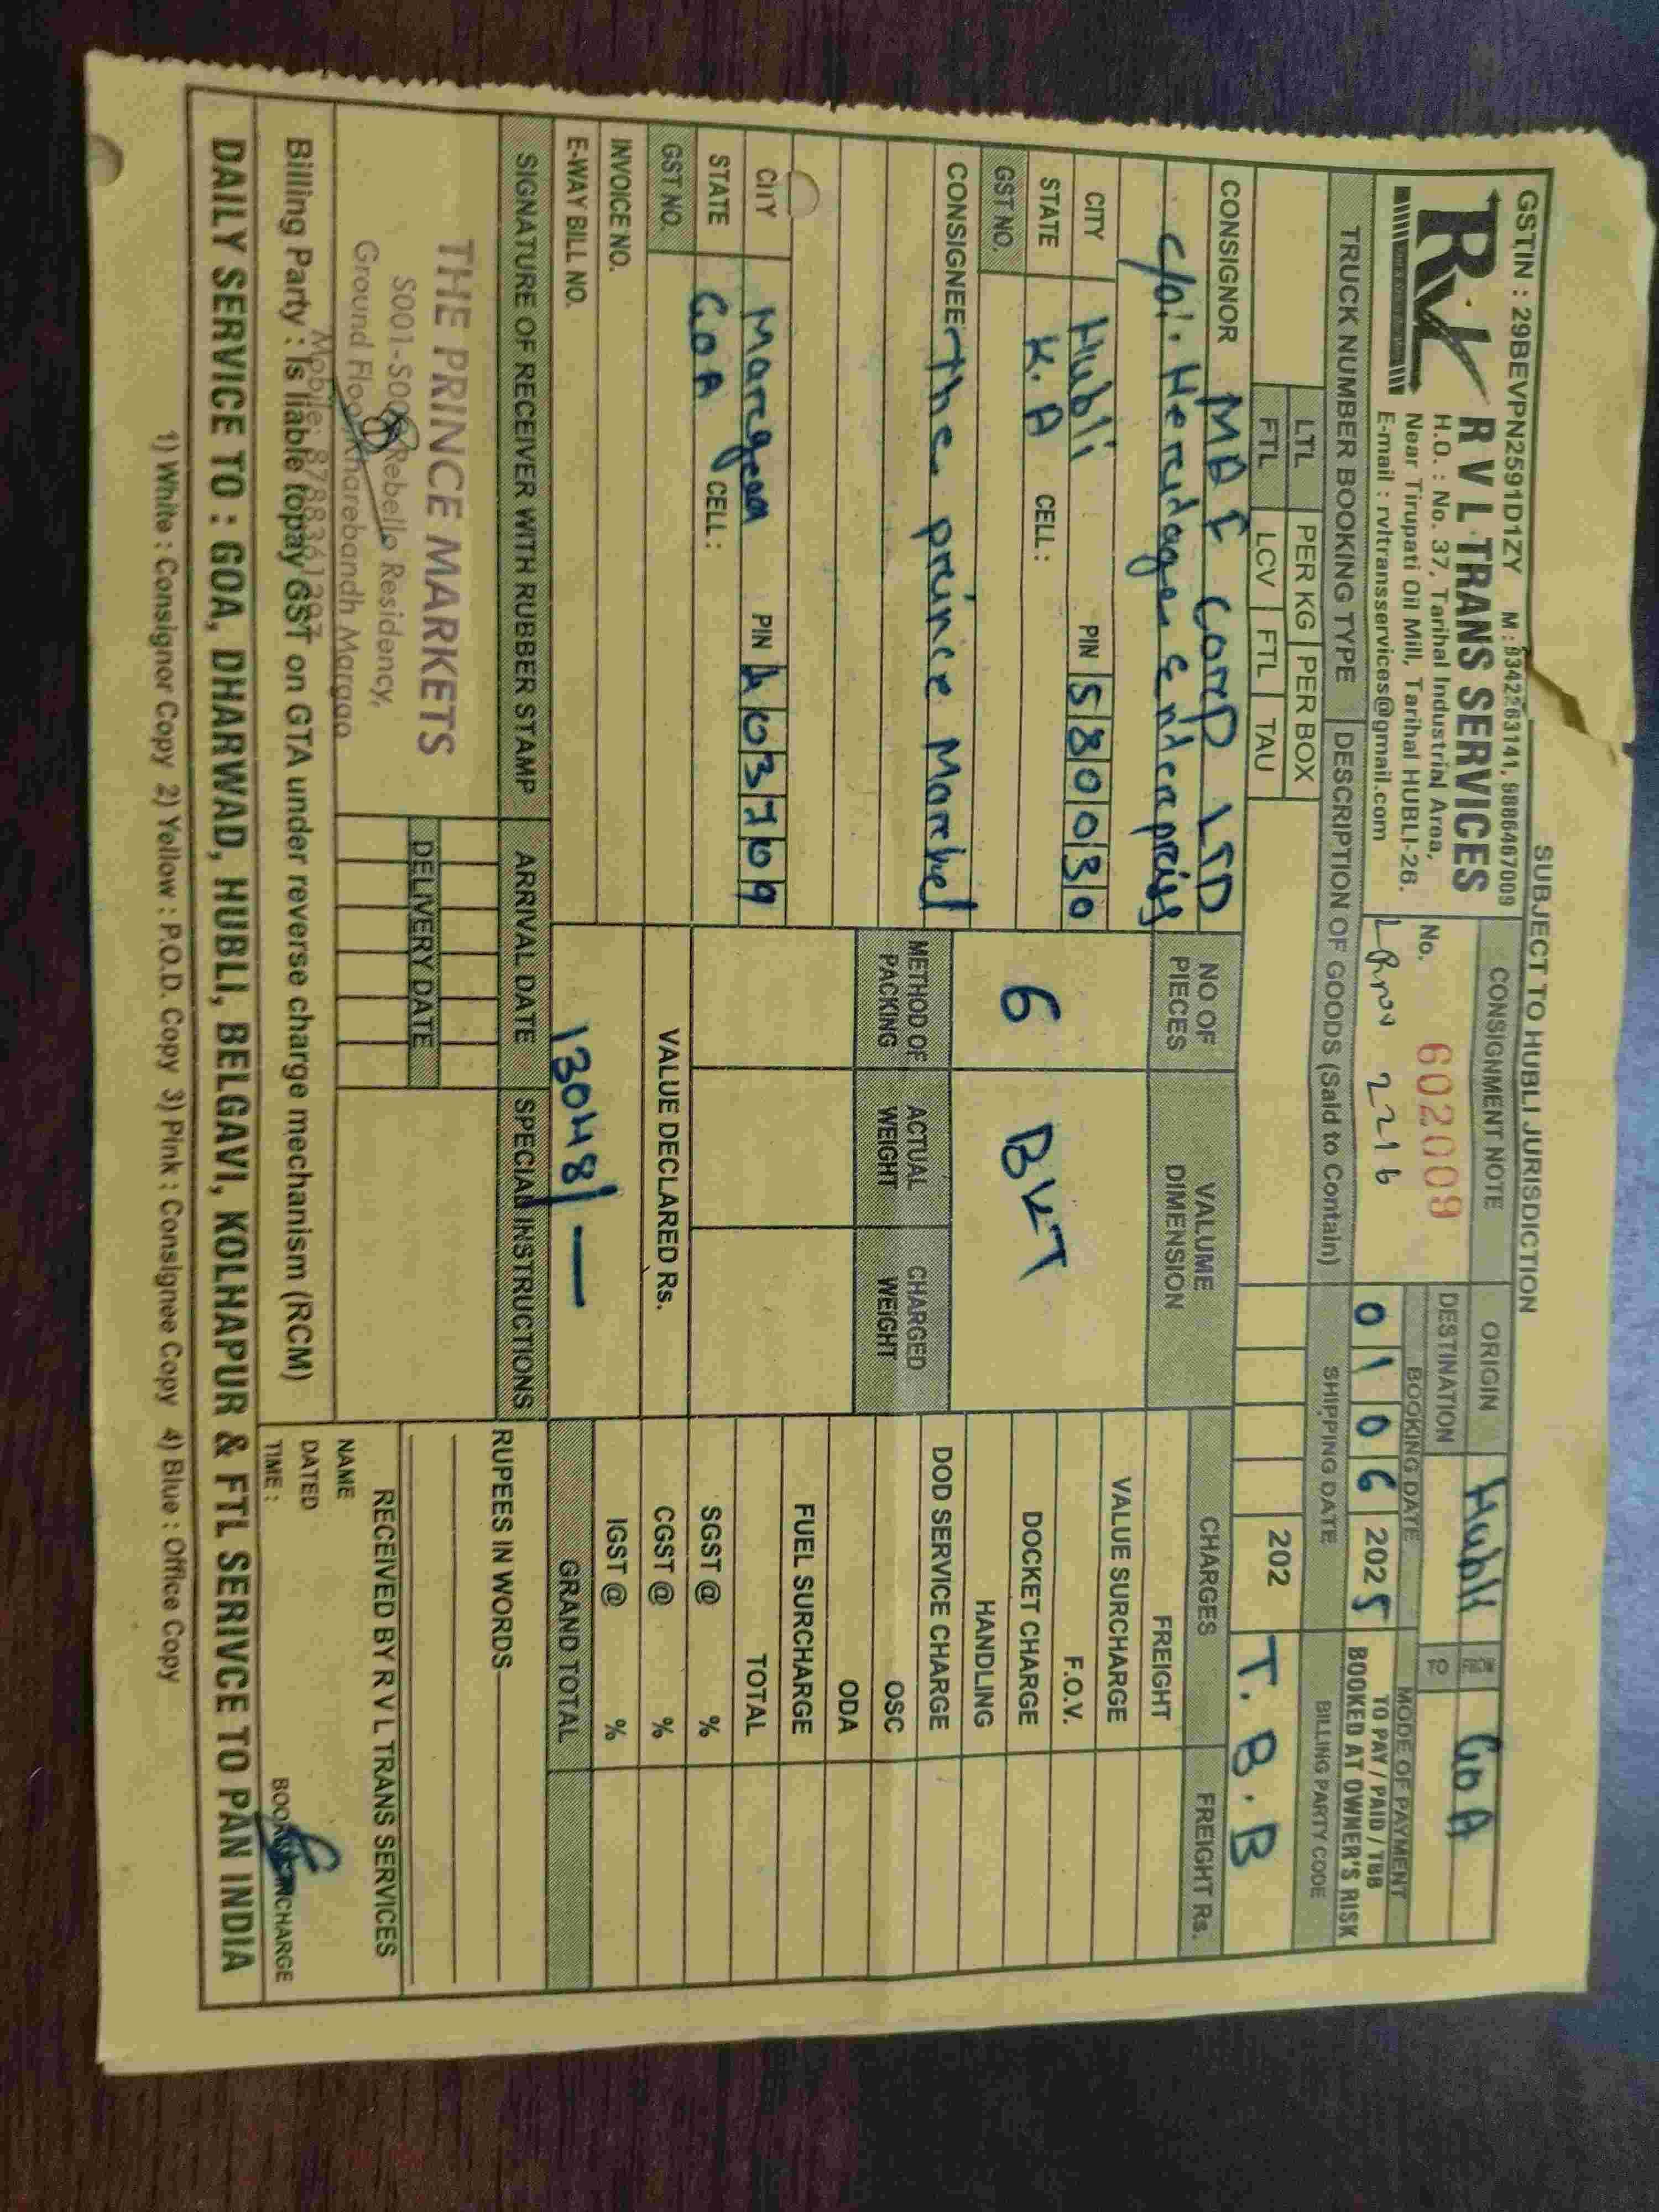 SUBJECT TO HUBLI JURISDICTION
GSTIN : 29BEVPN2591D1ZY M : 9342263141, 9886467009
RVL
R V L TRANS SERVICES
H.O. : No. 37, Tarihal Industrial Area,
Near Tirupati Oil Mill, Tarihal HUBLI-26.
E-mail : rvltransservices@gmail.com
CONSIGNMENT NOTE
No. 602009
2216
ORIGIN Hubli FROM GOA
DESTINATION TO
BOOKING DATE
0 1 0 6 2025
MODE OF PAYMENT
TO PAY / PAID / TBB
BOOKED AT OWNER'S RISK
TRUCK NUMBER BOOKING TYPE DESCRIPTION OF GOODS (Said to Contain) SHIPPING DATE BILLING PARTY CODE
LTL PER KG PER BOX
FTL LCV FTL TAU
202
T.B.B
CONSIGNOR MAF CORP LTD
CITY Hubli PIN 580030
STATE K.A CELL :
GST NO.
CONSIGNEE The prince Market
CITY PIN 403709
STATE GOA CELL :
GST NO.
INVOICE NO.
E-WAY BILL NO.
NO OF PIECES
VALUME DIMENSION
6 BKT
METHOD OF PACKING
ACTUAL WEIGHT
CHARGED WEIGHT
VALUE DECLARED Rs.
13048/—
CHARGES FREIGHT Rs.
FREIGHT
VALUE SURCHARGE
F.O.V.
DOCKET CHARGE
HANDLING
DOD SERVICE CHARGE
OSC
ODA
FUEL SURCHARGE
TOTAL
SGST @ %
CGST @ %
IGST @ %
GRAND TOTAL
SIGNATURE OF RECEIVER WITH RUBBER STAMP ARRIVAL DATE SPECIAL INSTRUCTIONS
DELIVERY DATE
THE PRINCE MARKETS
Rebello Residency,
Ground Floor Kharebandh Margao
RUPEES IN WORDS
RECEIVED BY R V L TRANS SERVICES
NAME
DATED
TIME :
BOOKING INCHARGE
Billing Party : Is liable topay GST on GTA under reverse charge mechanism (RCM)
DAILY SERVICE TO : GOA, DHARWAD, HUBLI, BELGAVI, KOLHAPUR & FTL SERIVCE TO PAN INDIA
1) White : Consignor Copy 2) Yellow : P.O.D. Copy 3) Pink : Consignee Copy 4) Blue : Office Copy